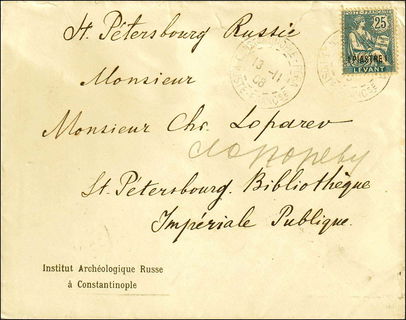 St. Pétersbourg Russie
25
1 PIASTRE 1
LEVANT
13 -11
08
Monsieur
Monsieur Chr. Loparev
St. Pétersbourg. Bibliothèque
Impériale Publique.
Institut Archéologique Russe
à Constantinople